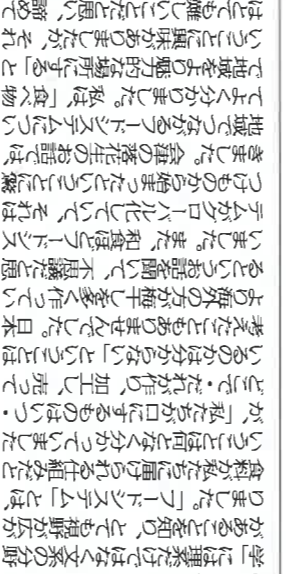 学」には農業だけではなく文系の分野
があることを知り、とても視野が広が
りました。「フードシステム」とは、
食料が私たちに届けられる仕組みだと
いうことは何となく分かっていました
が、「私たちが口にするものはいつ・
どこで・だれが作り、加工し、売って
いるのかは分からない」ということは
考えたこともありませんでした。日本
より海外の方が梅干しを多く作ってい
るというお話を聞いて、不思議だと思
いました。また、和食ほどフードシス
テムがグローバル化していて、それは
つけものから始まったということに驚
きました。会津の落花生のお話では、
地域でつながるフードシステムについ
てよく分かりました。私は、「食べ物
で地域をより魅力的な場所にする」と
いうことに興味がありましたが、それ
はとても難しいことだと思い、諦めて